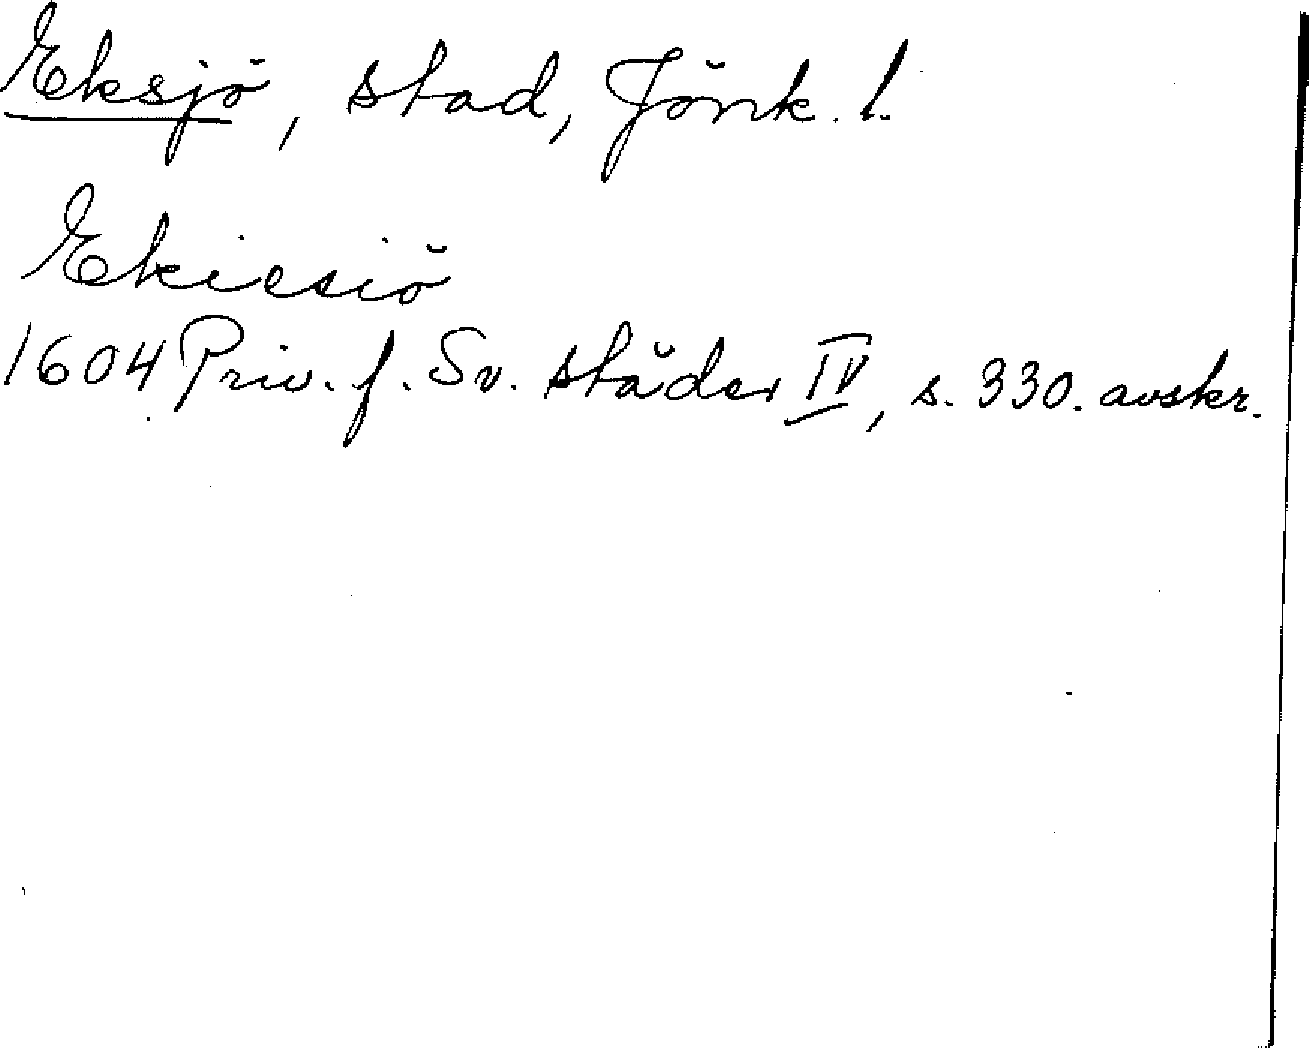 Eksjö, stad, Jönk. l.
Ekiesiö
1604 Priv. f. Sv. städer IV, s. 330. avskr.